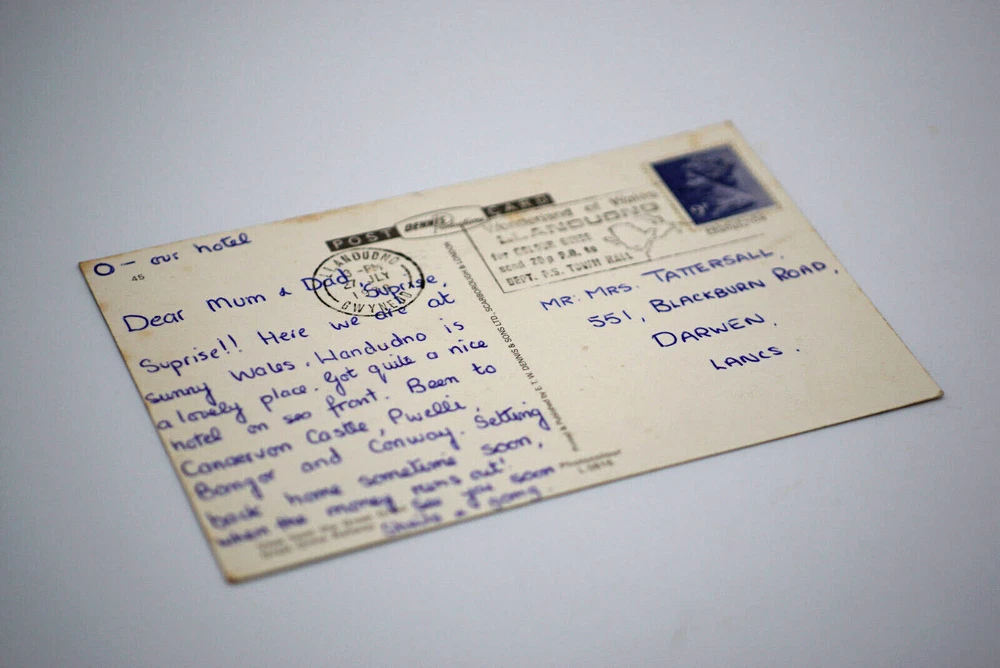 O - our hotel
45
POST DENNIS CARD
LLANDUDNO
-PM
JLY
GWYNEDD
Wonderland of Wales
LLANDUDNO
for COLOUR GUIDE
send 20p P.O. to
DEPT. P.S. TOWN HALL
Dear Mum & Dad, Suprise,
Suprise!! Here we are at
sunny Wales. Llandudno is
a lovely place. Got quite a nice
hotel on sea front. Been to
Canaervon Castle, Pwelli,
Bangor and Conway. Setting
back home sometime soon,
when the money runs out!
See you soon
Sheila & gang.
& Published by E. T. W. DENNIS & SONS LTD., SCARBOROUGH & LONDON
Photocolour
MR. MRS. TATTERSALL,
551, BLACKBURN ROAD,
DARWEN,
LANCS.